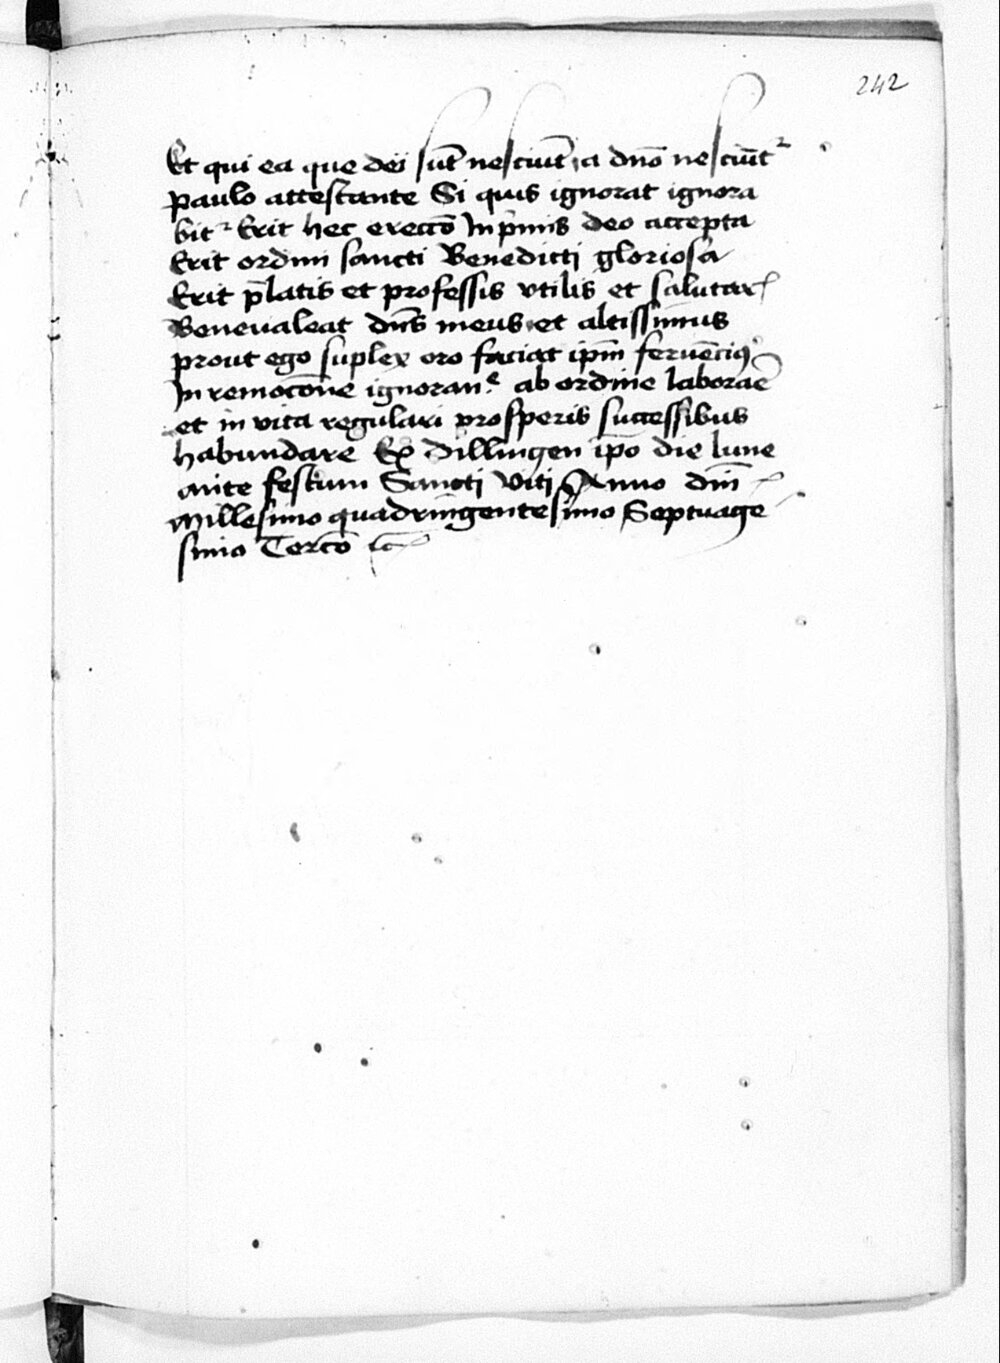 242
Et qui ea que dei su̅t nesciu̅t a dn̅o nesciu̅t᷑
paulo attestante Si quis ignorat ignora
bit᷑ Erit hec erecco̅ Inp̅mis deo accepta
Erit ordini sancti Benedicti gloriosa
Erit p̅latis et professis vtilis et salutar
Beneualeat dn̅s meus et altissimus
prout ego suplex oro faciat ip̅m ferue̅cius
In remoco̅ne ignoran ab ordine laborae̅
et in vita regulari prosperis successibus
habundare Ex Dillingen ip̅o die lune
ante festum Sancti Viti Anno dm̅
Millesimo quadringentesimo Septuage
simo Terco̅ &c